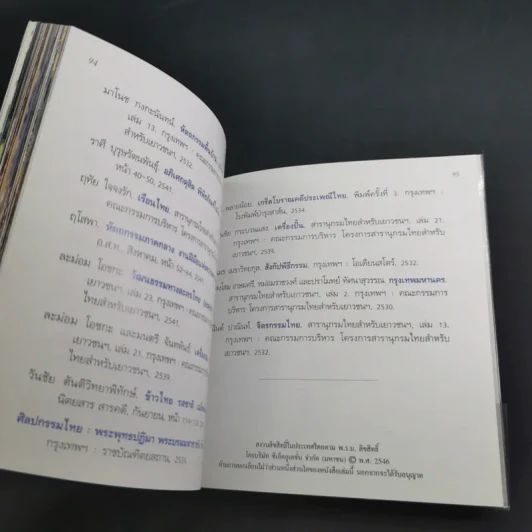 94
มาโนช กงกะนันทน์. หัตถกรรมพื้นบ้าน
เล่ม 13. กรุงเทพฯ : คณะกรรมการ
สำหรับเยาวชนฯ, 2532.
ราศี บุรุษรัตนพันธุ์.
หน้า 40-50, 2541.
ฤทัย ใจจงรัก. เรือนไทย. สารานุกรมไทยสำหรับ
คณะกรรมการบริหาร โครงการสารานุกรม
ฤโสพา. หัตถกรรมภาคกลาง
อ.ส.ท. สิงหาคม, หน้า 52-64, 2541.
ละม่อม โอชกะ. วัฒนธรรมทางดนตรีไทย
เยาวชนฯ, เล่ม 23. กรุงเทพฯ : คณะกรรมการ
ไทยสำหรับเยาวชนฯ, 2541.
ละม่อม โอชกะและมนตรี จันทพันธ์.
เยาวชนฯ, เล่ม 21. กรุงเทพฯ : คณะกรรมการ
ไทยสำหรับเยาวชนฯ, 2539.
วันชัย ตันติวิทยาพิทักษ์. ข้าวไทย
นิตยสาร สารคดี, กันยายน, หน้า
ศิลปกรรมไทย : พระพุทธปฏิมา พระบรมมหาราชวัง
กรุงเทพฯ : ราชบัณฑิตยสถาน,
95
พลายน้อย. เกร็ดโบราณคดีประเพณีไทย. พิมพ์ครั้งที่ 3. กรุงเทพฯ :
โรงพิมพ์บำรุงสาส์น, 2534.
เครื่องปั้น. สารานุกรมไทยสำหรับเยาวชนฯ, เล่ม 21.
กรุงเทพฯ : คณะกรรมการบริหาร โครงการสารานุกรมไทยสำหรับเยาวชนฯ,
2539.
สังกัปพิธีกรรม. กรุงเทพฯ : โอเดียนสโตร์, 2532.
หม่อมราชวงศ์ และปราโมทย์ ทัศนาสุวรรณ. กรุงเทพมหานคร.
สารานุกรมไทยสำหรับเยาวชนฯ, เล่ม 2. กรุงเทพฯ : คณะกรรมการ
บริหาร โครงการสารานุกรมไทยสำหรับเยาวชนฯ, 2532.
จิตรกรรมไทย. สารานุกรมไทยสำหรับเยาวชนฯ, เล่ม 13.
กรุงเทพฯ : คณะกรรมการบริหาร โครงการสารานุกรมไทยสำหรับเยาวชนฯ,
2532.
สงวนลิขสิทธิ์ในประเทศไทยตาม พ.ร.บ. ลิขสิทธิ์
โดยบริษัท ซีเอ็ดยูเคชั่น จำกัด (มหาชน) © พ.ศ. 2546
ห้ามการลอกเลียนไม่ว่าส่วนหนึ่งส่วนใดของหนังสือเล่มนี้ นอกจากจะได้รับอนุญาต